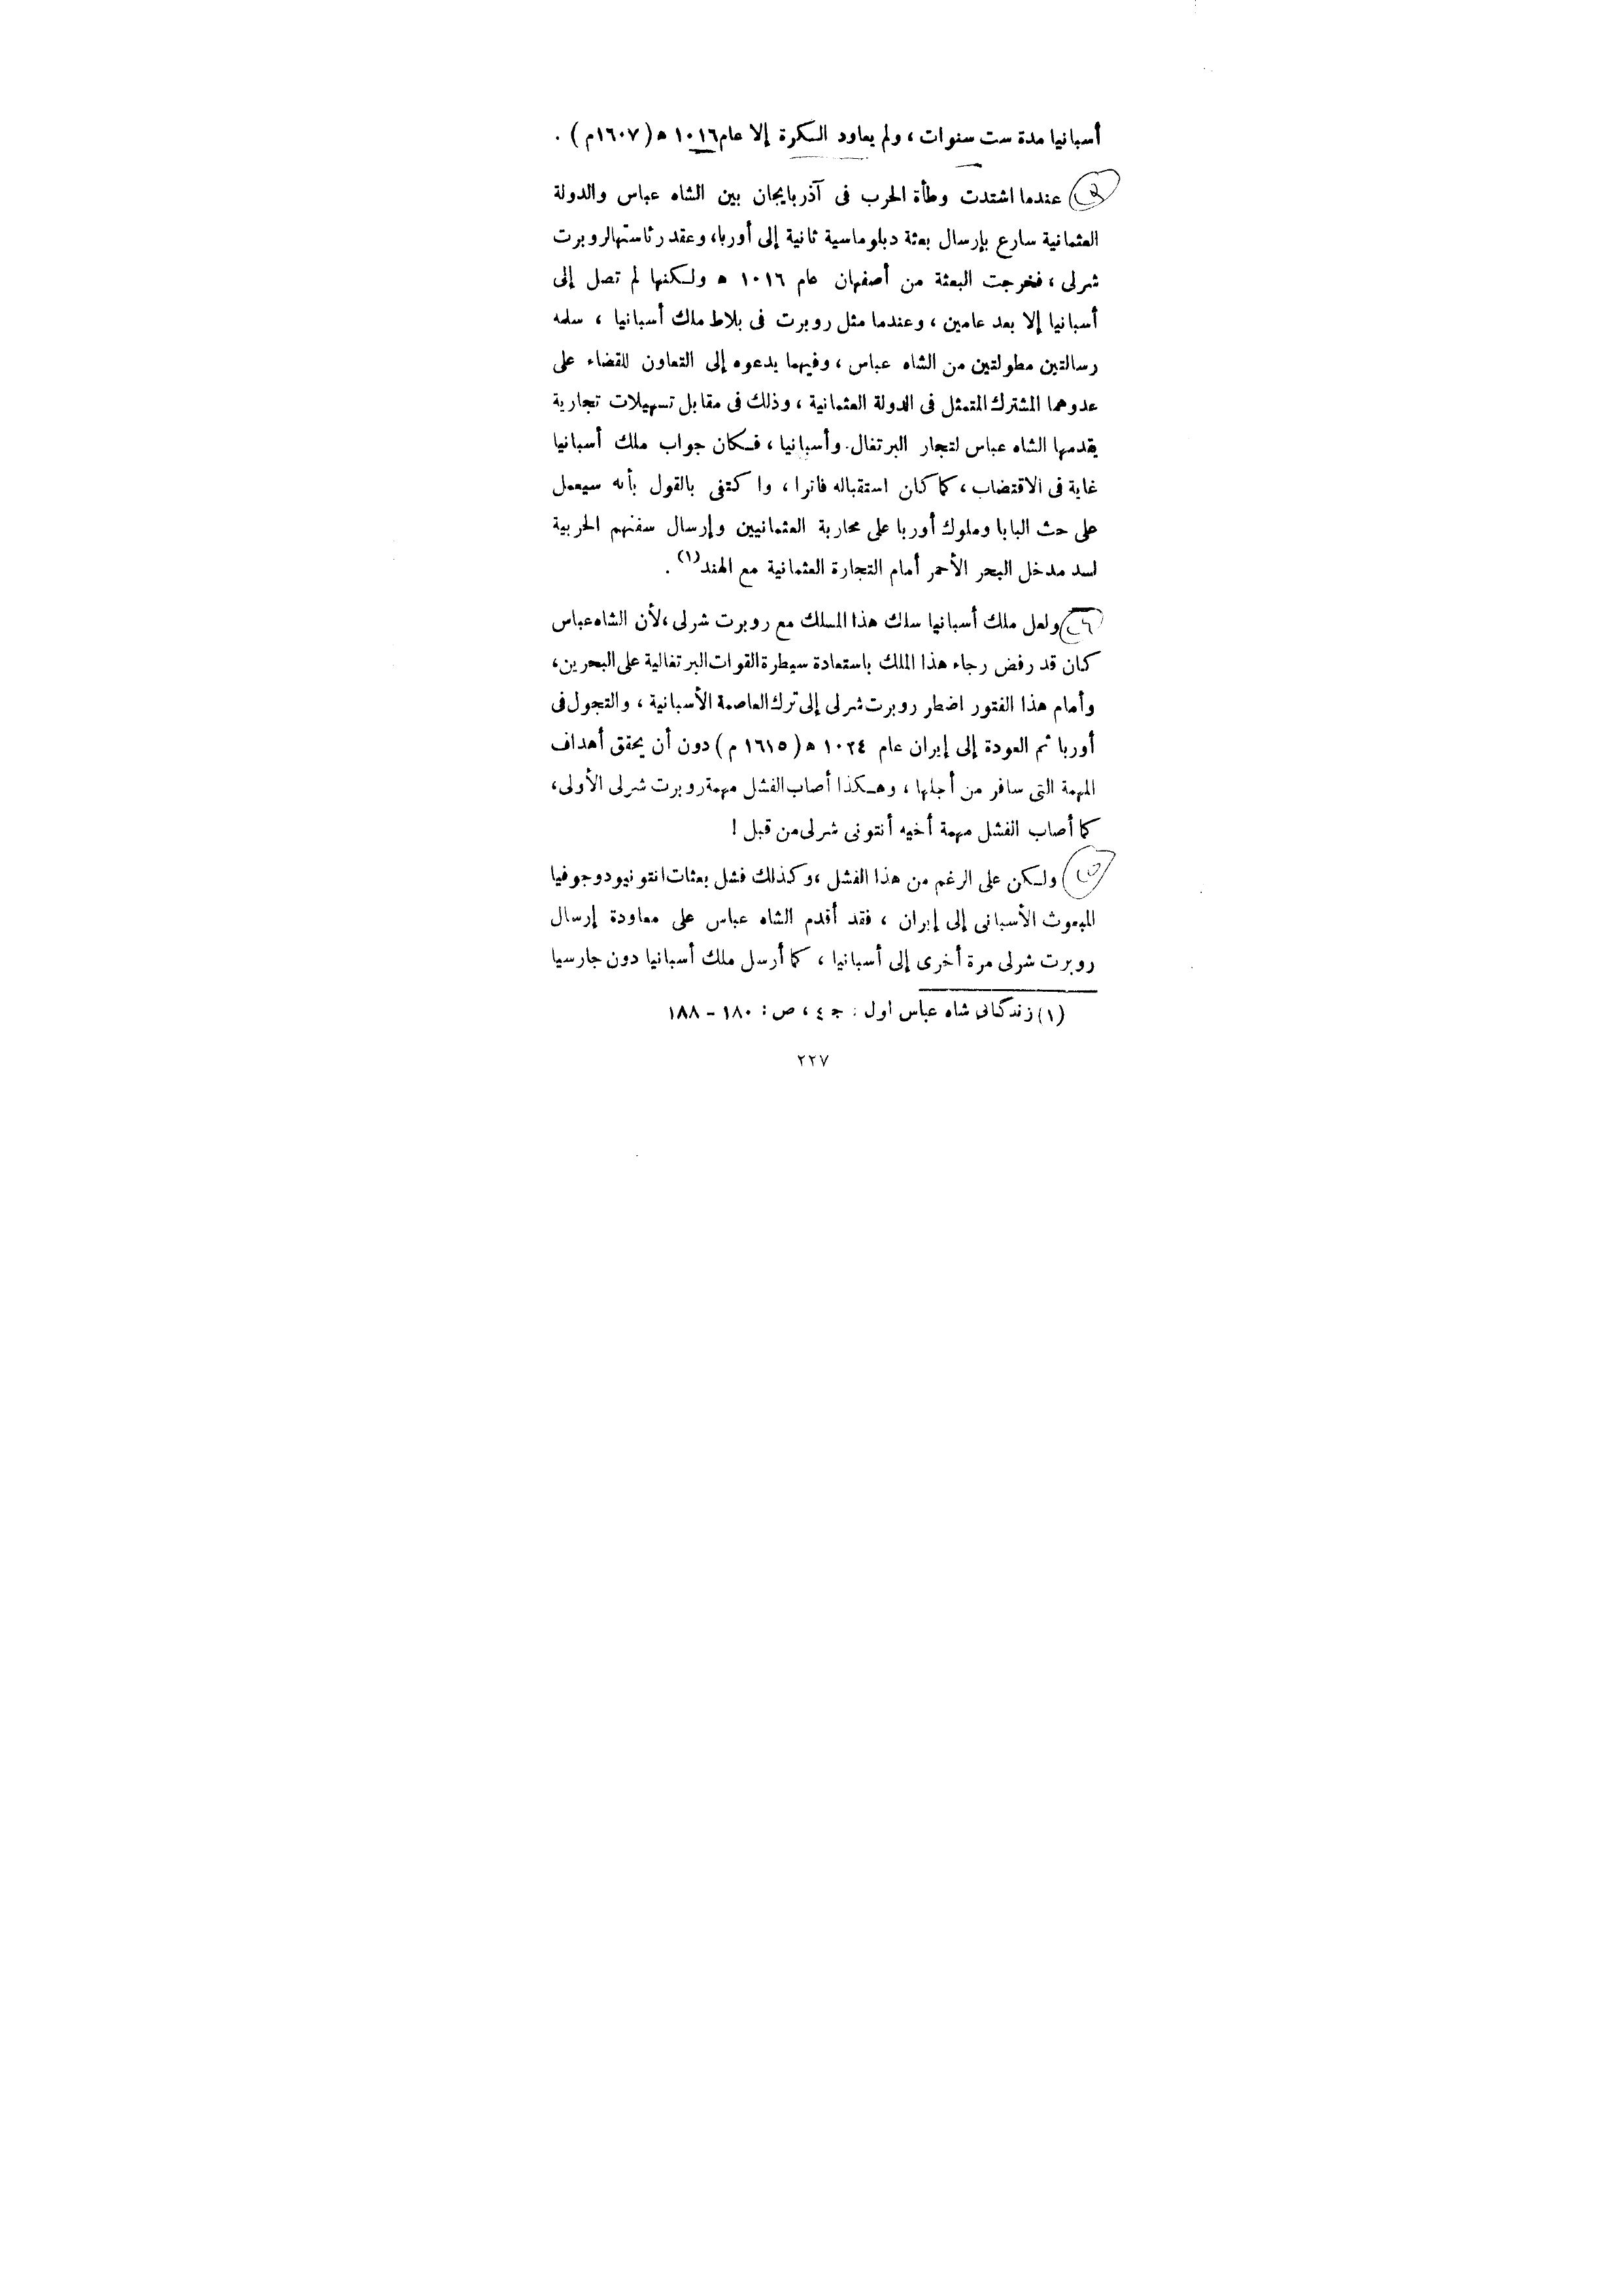 أسبانيا مدة ست سنوات ، ولم يعاود الكرة إلا عام ١٠١٦ ه (١٦٠٧م) .
عندما اشتدت وطأة الحرب فى آذربايجان بين الشاه عباس والدولة
العثمانية سارع بإرسال بعثة دبلوماسية ثانية إلى أوربا، وعقد رئاستها لروبرت
شرلى ، فخرجت البعثة من أصفهان عام ١٠١٦ ه ولكنها لم تصل إلى
أسبانيا إلا بعد عامين ، وعندما مثل روبرت فى بلاط ملك أسبانيا ، سلمه
رسالتين مطولتين من الشاه عباس ، وفيهما يدعوه إلى التعاون للقضاء على
عدوهما المشترك المتمثل فى الدولة العثمانية ، وذلك فى مقابل تسهيلات تجارية
يقدمها الشاه عباس لتجار البرتغال وأسبانيا ، فكان جواب ملك أسبانيا
غاية فى الاقتضاب ، كما كان استقباله فاترا ، واكتفى بالقول بأنه سيعمل
على حث البابا وملوك أوربا على محاربة العثمانيين وإرسال سفنهم الحربية
لسد مدخل البحر الأحمر أمام التجارة العثمانية مع الهند (١) .
ولعل ملك أسبانيا سلك هذا المسلك مع روبرت شرلى ، لأن الشاه عباس
كان قد رفض رجاء هذا الملك باستعادة سيطرة القوات البرتغالية على البحرين ،
وأمام هذا الفتور اضطر روبرت شرلى إلى ترك العاصمة الأسبانية ، والتجول فى
أوربا ثم العودة إلى إيران عام ١٠٢٤ ه (١٦١٥ م) دون أن يحقق أهداف
المهمة التى سافر من أجلها ، وهكذا أصاب الفشل مهمة روبرت شرلى الأولى ،
كما أصاب الفشل مهمة أخيه أنتونى شرلى من قبل !
ولكن على الرغم من هذا الفشل ، وكذلك فشل بعثات انتونيو دو جوفيا
المبعوث الأسبانى إلى إيران ، فقد أقدم الشاه عباس على معاودة إرسال
روبرت شرلى مرة أخرى إلى أسبانيا ، كما أرسل ملك أسبانيا دون جارسيا
(١) زندگانى شاه عباس اول : ج ٤ ، ص : ١٨٠ - ١٨٨
٢٢٧